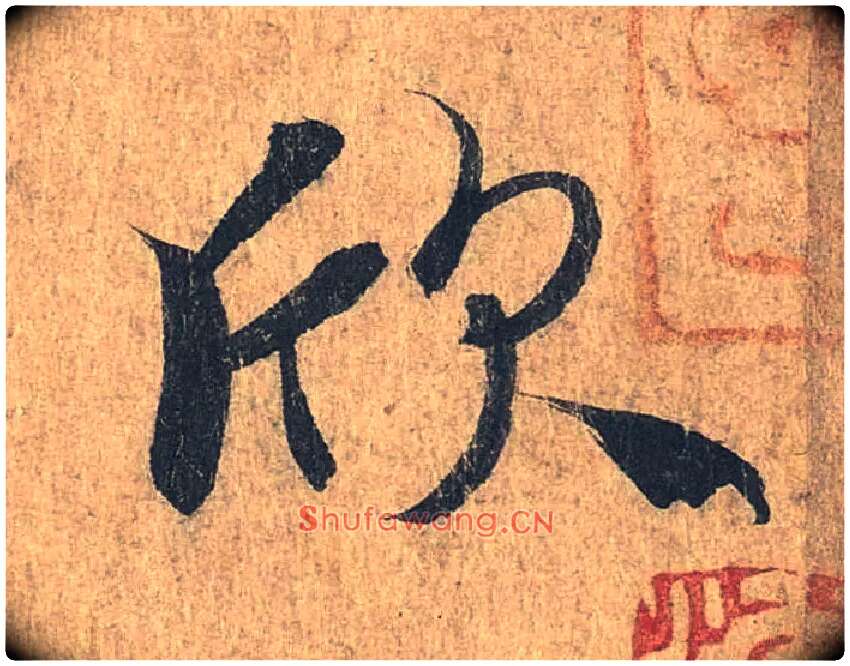 欣
Shufawang.CN